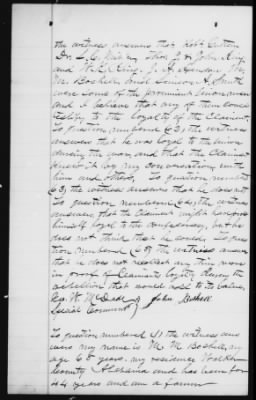 the witness answers that Robt Guttery
Dr. S. C. John J. & John King
and W. B. King. J. A.
M. M. Boshell and Simeon H. Smith
were some of the prominent Union men
and I believe that any of them could
testify to the loyalty of the Claimant.
To question numbered (62) the witness
answers that he was loyal to the Union
during the war, and that the Claimant
knew it by my conversation with
him and others. To question numbered
(63) the witness answers that he does not
To question numbered (64) the witness
answers, that the Claimant might have proved
himself loyal to the Confederacy, but he
does not think that he could. To ques
tion numbered (65) the witness answers
that he does not recollect any thing more
in proof of Claimants loyalty during the
rebellion that would add to its value.
Geo. W. McDade John Boshell
Special Commr
To question numbered (1) the witness ans
wers my name is M. M. Boshell, my
age 65 years, my residence Walker
County Alabama and has been for
44 years and am a farmer